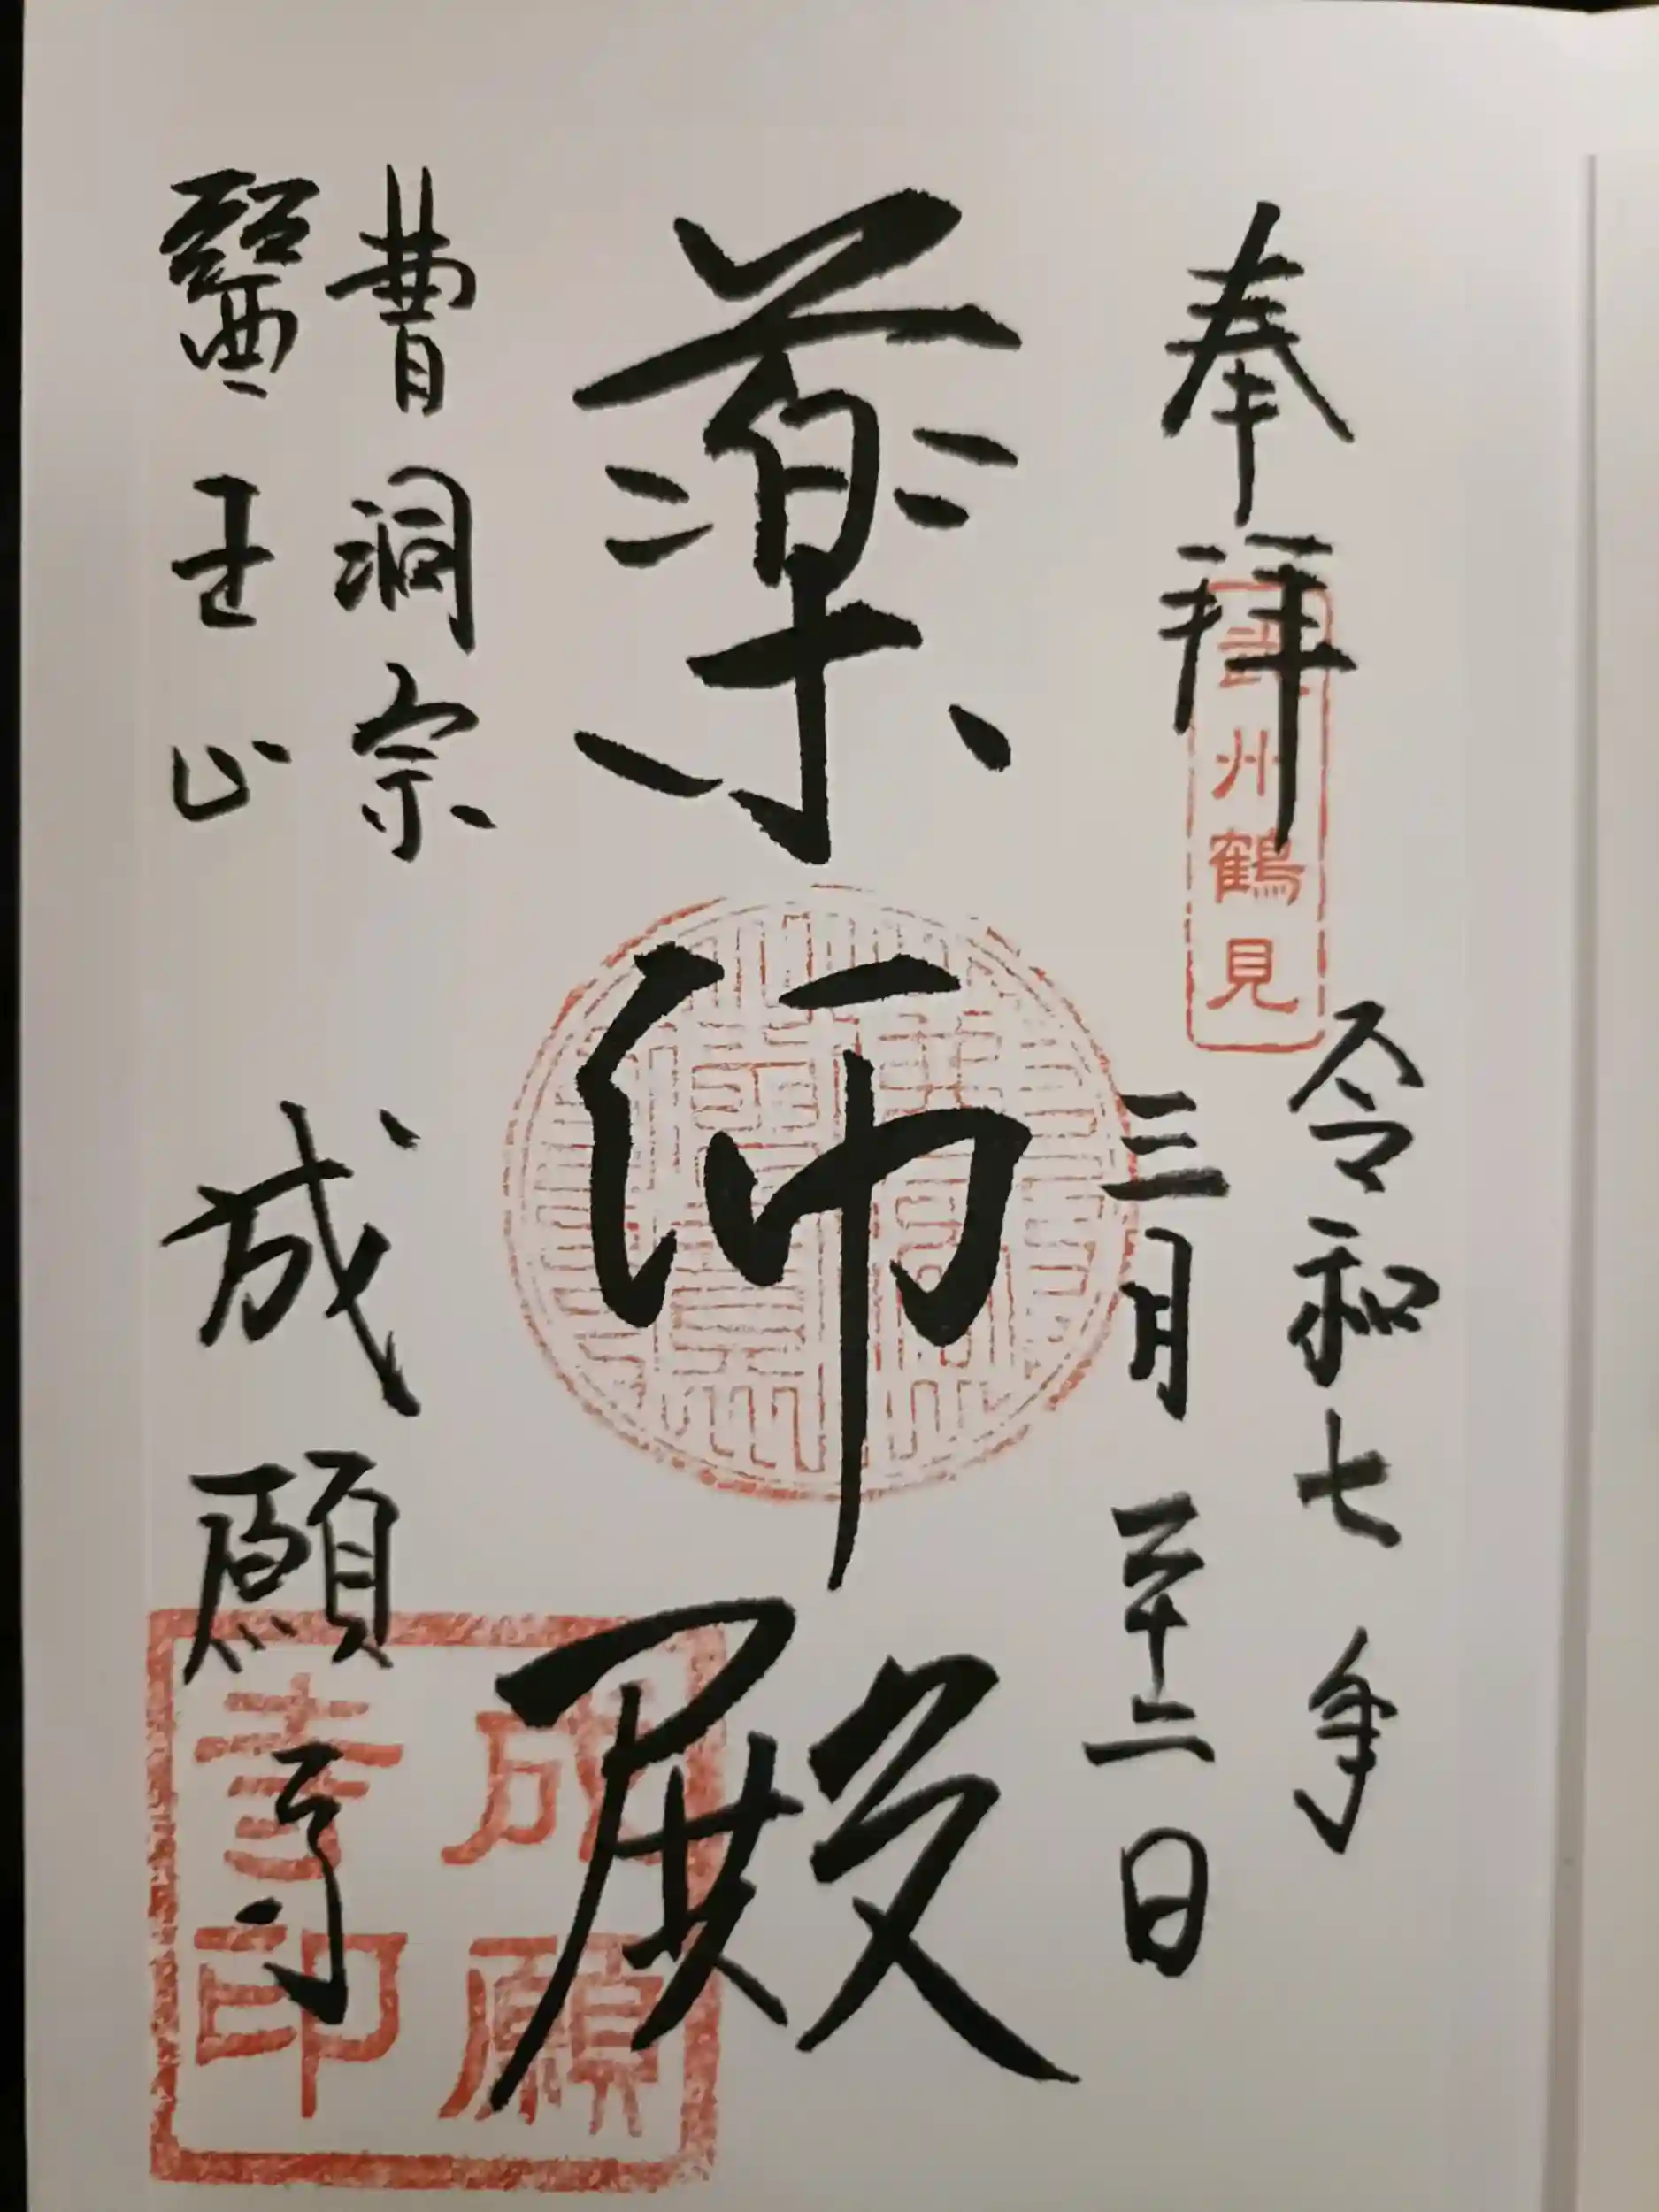 奉拝
武州鶴見
令和七年
三月二十二日
薬師殿
曹洞宗
醫王山
成願寺
成願
寺印